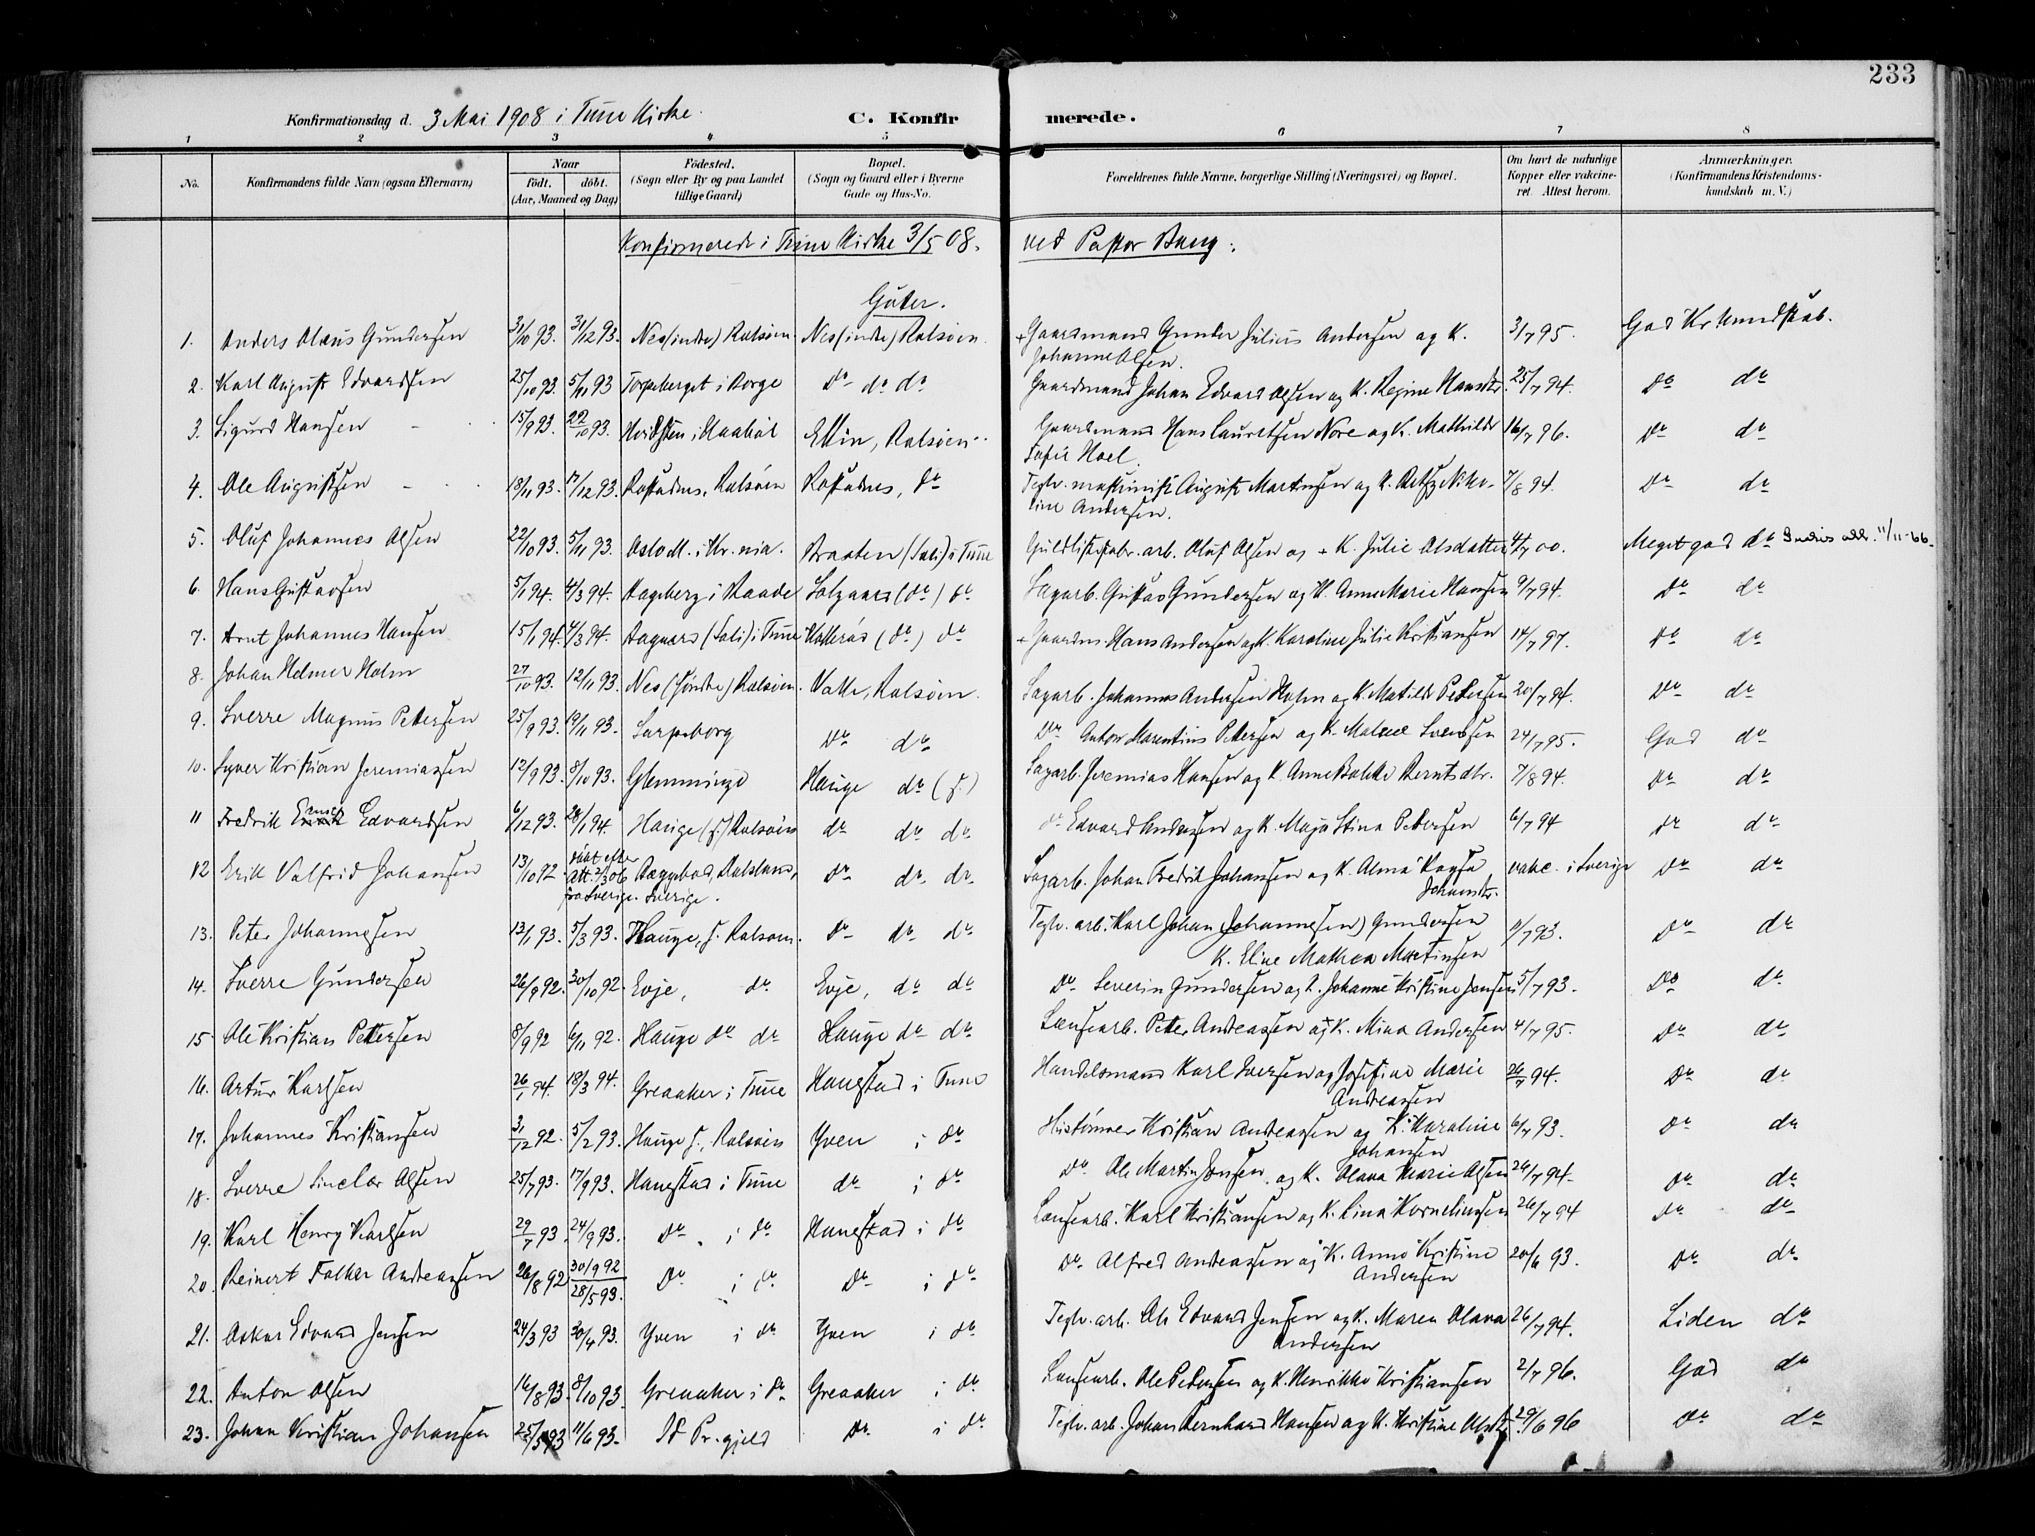 233
Konfirmationsdag d. 3 Mai 1908 i Tune Kirke. C. Konfirmerede.
1 2 3 4 5 6 7 8
No. Konfirmandens fulde Navn (ogsaa Efternavn) Naar født. døbt. (Aar, Maaned og Dag) Fødested. (Sogn eller By og paa Landet tillige Gaard) Bopæl. (Sogn og Gaard eller i Byerne Gade og Hus-No. Forældrenes fulde Navne, borgerlige Stilling (Næringsvei) og Bopæl. Om havt de naturlige Kopper eller vakcineret. Attest herom. Anmærkninger. (Konfirmandens Kristendomskundskab m. V.)
Konfirmerede i Tune Kirke 3/5 08. ved Pastor Bang:
Gutter.
1. Anders Olaus Gundersen 31/10 93. 31/12 93. Nes (indre) Rolsøen. Nes (indre) Rolsøen. + Gaardmand Gunder Julius Andersen og K. 3/7 95. God Kr. kundskab.
Johanne Olsen.
2. Karl August Edvardsen 25/10 93. 5/11 93 Torpeberget i Borge do do do Gaardmand Johan Edvard Olsen og K. Regine Hansdtr. 25/7 94. do do
3. Sigurd Hansen 15/9 93. 22/10 93. Hvidsten i Vaabøl Ellin, Rolsøen. Gaardmand Hans Lauretsen Nore og K. Mathilde 16/7 96. do do
Sofie Hoel.
4. Ole Augustsen 18/11 93. 17/12 93. Rostadnes, Rolsøen Rostadnes, do Teglv. maskinist August Martinsen og K. Betzy Niko- 7/8 94. do do
line Andersen.
5. Oluf Johannes Olsen 22/10 93. 5/11 93. Oslo M. i Kr.nia. Braaten (Soli) i Tune Guldlistefabr. arb. Oluf Olsen og + K. Julie Olsdatter 4/7 00. Meget god do 11/11-66.
6. Hans Gustavsen 5/1 94. 4/3 94. Aageberg i Raade Solgaard (do) do Sagarb. Gustav Gundersen og K. Anne Marie Hansen 9/7 94. do do
7. Arnt Johannes Hansen 15/1 94. 4/3 94. Aagaard (Soli) i Tune Kallerås (do) do + Gaardm. Hans Andersen og K. Karoline Julie Kristiansen 14/7 97. do do
8. Johan Helmer Holm 27/10 93. 12/11 93. Nes (Søndre) Rolsøen. Valle, Rolsøen. Sagarb. Johannes Andersen Holm og K. Matilde Petersen 20/7 94. do do
9. Sverre Magnus Petersen 25/9 93. 19/11 93. Sarpsborg do do do Anton Marentius Petersen og K. Malene Svendsen 24/7 95. God do
10. Syver Kristian Jeremiassen 12/9 93. 8/10 93. Glemminge Hauge do (s.) Sagarb. Jeremias Hansen og K. Anne Bolette Berntsdtr. 7/8 94. do do
11 Fredrik Ernst Edvardsen 6/12 93. 28/1 94. Hauge (s.) Rolsøen do do do do Edvard Andersen og K. Maja Stina Petersen 6/7 94 do do
12 Erik Valfrid Johansen 13/10 92 døbt efter Att. 2/3 06 fra Sverige. Sverige. do do do Sagarb. Johan Fredrik Johansen og K. Alma Kajsa vakc. i Sverige do do
Johansdtr.
13. Peter Johannesen 13/1 93. 5/3 93. Hauge, s. Rolsøen. do do do Teglv. arb. Karl Johan (Johannesen) Gundersen 9/7 93. do do
K. Eline Mathea Martinsen
14. Sverre Gundersen 26/9 92. 30/10 92. Evje, do Evje, do do do Severin Gundersen og K. Johanne Kristine Jensen 5/7 93. do do
15. Ole Kristian Pettersen 8/9 92 6/11 92. Hauge do do Hauge do do Lænsearb. Peter Andreassen og + K. Mina Andersen 4/7 95. do do
16. Artur Karlsen 26/1 94. 18/3 94. Greaaker i Tune Haugstad i Tune Handelsmand Karl Iversen og Josefine Marie 26/7 94. do do
Andreassen
17. Johannes Kristiansen 31/12 92. 5/2 93. Hauge s., Rolsøen Yven i do Hustømrer Kristian Andreassen og K. Karoline 6/7 93. do do
Johansen
18. Sverre Sinclar Olsen 25/7 93. 17/9 93. Haugstad i Tune do i do do Ole Martin Jensen og K. Olava Marie Olsen 26/7 94. do do
19. Karl Henry Karlsen 29/7 93. 24/9 93. do i do Haugstad i do Lænsearb. Karl Kristiansen og K. Lina Korneliussen 26/7 94 do do
20. Reinert Falker Andreassen 26/8 92 30/9 92 28/5 93. do i do do i do do Alfred Andreassen og K. Anna Kristine 20/6 93. do do
Andersen
21. Oskar Edvard Jensen 24/3 93 30/4 93. Yven i do Yven i do Teglv. arb. Ole Edvard Jensen og K. Maren Olava 26/7 94. Liden do
Andersen
22. Anton Olsen 16/8 93. 8/10 93. Greaaker i do Greaaker i do Lænsearb. Ole Petersen og K. Henrikke Kristiansen 2/7 96. God do
23. Johan Kristian Johansen 25/3 93 11/6 93. Id Pr.gjeld do i do Teglv. arb. Johan Bernhard Hansen og K. Kristine Olsdtr. 29/6 96 do do